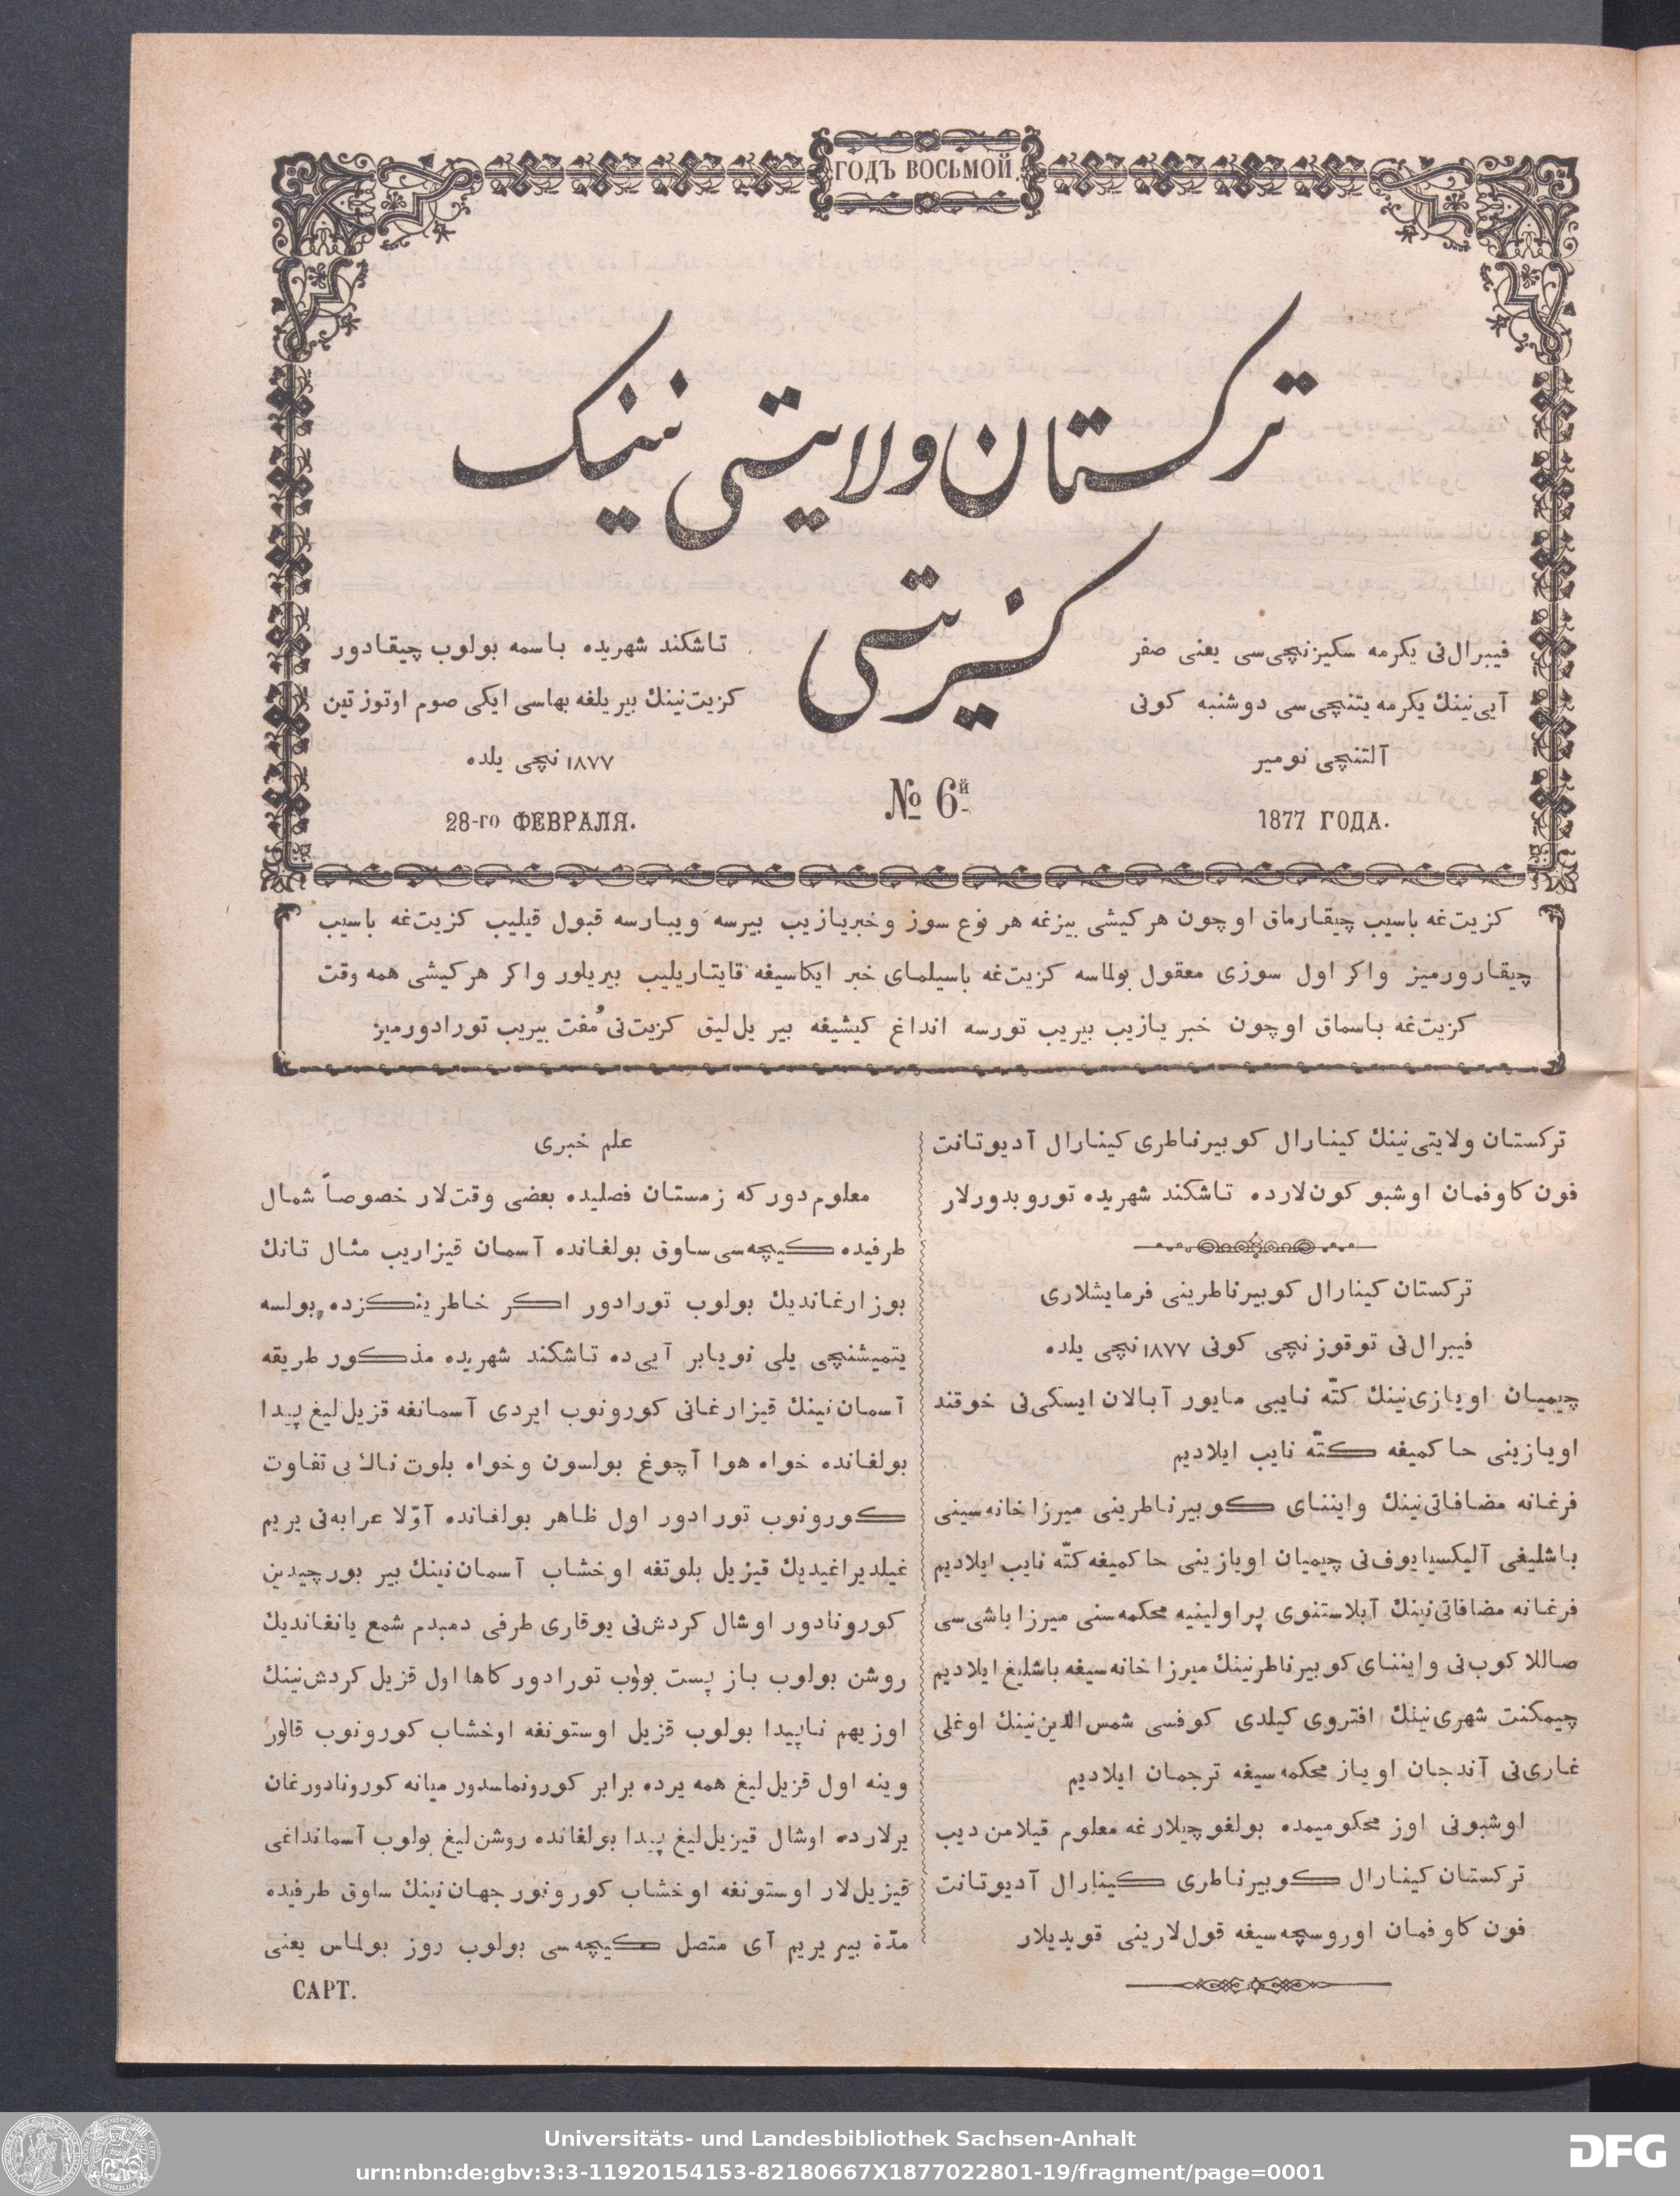 ГОДЪ ВОСЬМОЙ.
ترکستان ولایتی نینک
کزیتی
فیبرال‌نی یکرمه سکیزنچی‌سی یعنی صفر
آیی‌نینك یکرمه یتنچی‌سی دوشنبه کونی
آلتنچی نومیر
1877 ГОДА.
№ 6й
تاشکند شهریده باسمه بولوب چیقادور
کزیت‌نینك بیر یلغه بهاسی ایکی صوم اوتوز تین
۱۸۷۷ نچی یلده
28-го ФЕВРАЛЯ.
کزیت‌غه باسیب چیقارماق اوچون هر کیشی بیزغه هر نوع سوز و خبر یازیب بیرسه ویبارسه قبول قیلیب کزیت‌غه باسیب
چیقارورمیز واکر اول سوزی معقول بولماسه کزیت‌غه باسیلمای خبر ایکاسیغه قایتاریلیب بیریلور واکر هر کیشی همه وقت
کزیت‌غه باسماق اوچون خبر یازیب بیریب تورسه انداغ کیشیغه بیر یل‌لیق کزیت‌نی مُفت بیریب تورادورمیز
ترکستان ولایتی‌نینك کینارال کوبیرناطری کینارال آدیوتانت
فون کاوفمان اوشبو کون‌لارده تاشکند شهریده توروبدورلار
ترکستان کینارال کوبیرناطرینی فرمایشلاری
فیبرال‌نی توقوزنچی کونی ۱۸۷۷ نچی یلده
چیمیان اویازی‌نینك کتّه نایبی مایور آبالان ایسکی‌نی خوقند
اویازینی حاکمیغه کتّه نایب ایلادیم
فرغانه مضافاتی‌نینك واینای کوبیرناطرینی میرزا خانه‌سینی
باشلیغی آلیکسیایوف‌نی چیمیان اویازینی حاکمیغه کتّه نایب ایلادیم
فرغانه مضافاتی‌نینك آبلاستنوی پراولینیه محکمه‌سنی میرزا باشی‌سی
صاللاکوب‌نی واینای کوبیرناطرنینك میرزا خانه‌سیغه باشلیغ ایلادیم
چیمکنت شهری‌نینك افتروی کیلدی کوفسی شمس‌الدین‌نینك اوغلی
غاری‌نی آندجان اویاز محکمه‌سیغه ترجمان ایلادیم
اوشبونی اوز محکومیمده بولغوچیلارغه معلوم قیلامن دیب
ترکستان کینارال کوبیرناطری کینارال آدیوتانت
فون کاوفمان اوروسچه‌سیغه قول‌لارینی قویدیلار
علم خبری
معلوم دورکه زمستان فصلیده بعضی وقت‌لار خصوصاً شمال
طرفیده کیچه‌سی ساوق بولغانده آسمان قیزاریب مثال تانك
بوزارغاندیك بولوب تورادور اکر خاطرینکزده بولسه
یتمیشنچی یلی نویابر آیی‌ده تاشکند شهریده مذکور طریقه
آسمان‌نینك قیزارغانی کورونوب ایردی آسمانغه قزیل‌لیغ پیدا
بولغانده خواه هوا آچوغ بولسون وخواه بلوت‌ناك بی تفاوت
کورونوب تورادور اول ظاهر بولغانده آوّلا عرابه‌نی یریم
غیلدیراغیدیك قیزیل بلوتغه اوخشاب آسمان‌نینك بیر بورچیدین
کورونادور اوشال کردش‌نی یوقاری طرفی دمبدم شمع یانغاندیك
روشن بولوب باز پست بولوب تورادور کاها اول قزیل کردش‌نینك
اوزیهم ناپیدا بولوب قزیل اوستونغه اوخشاب کورونوب قالور
وینه اول قزیل‌لیغ همه یرده برابر کورونماسدور میانه کورونادورغان
یرلارده اوشال قیزیل‌لیغ پیدا بولغانده روشن‌لیغ بولوب آسمانداغی
قیزیل‌لار اوستونغه اوخشاب کورونور جهان‌نینك ساوق طرفیده
مدّة بیر یریم آی متصل کیچه‌سی بولوب روز بولماس یعنی
САРТ.
Universitäts- und Landesbibliothek Sachsen-Anhalt
urn:nbn:de:gbv:3:3-11920154153-82180667X1877022801-19/fragment/page=0001
DFG